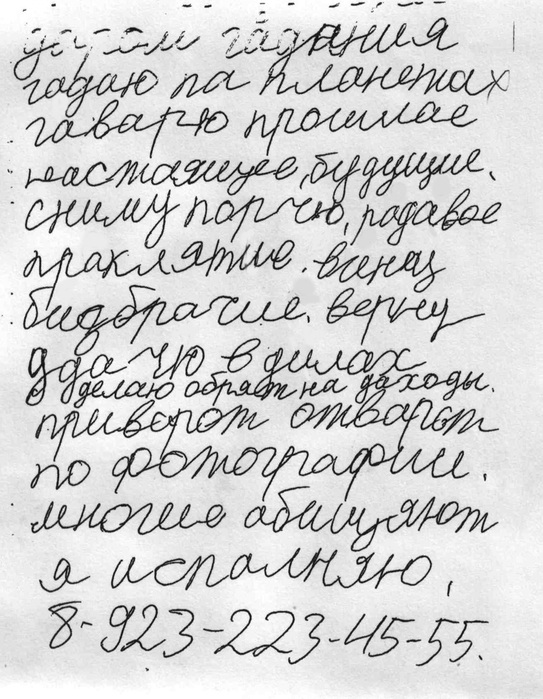 даром гадания
гадаю па планетах
гаварю прошлае
настаящее, будущие.
сниму порчю, радавое
праклятие. винец
бизбрачие. верну
удачю в дилах
делаю обрят на даходы.
приворот отварот
по фотографии.
многие абищяют
я исполняю,
8-923-223-45-55.